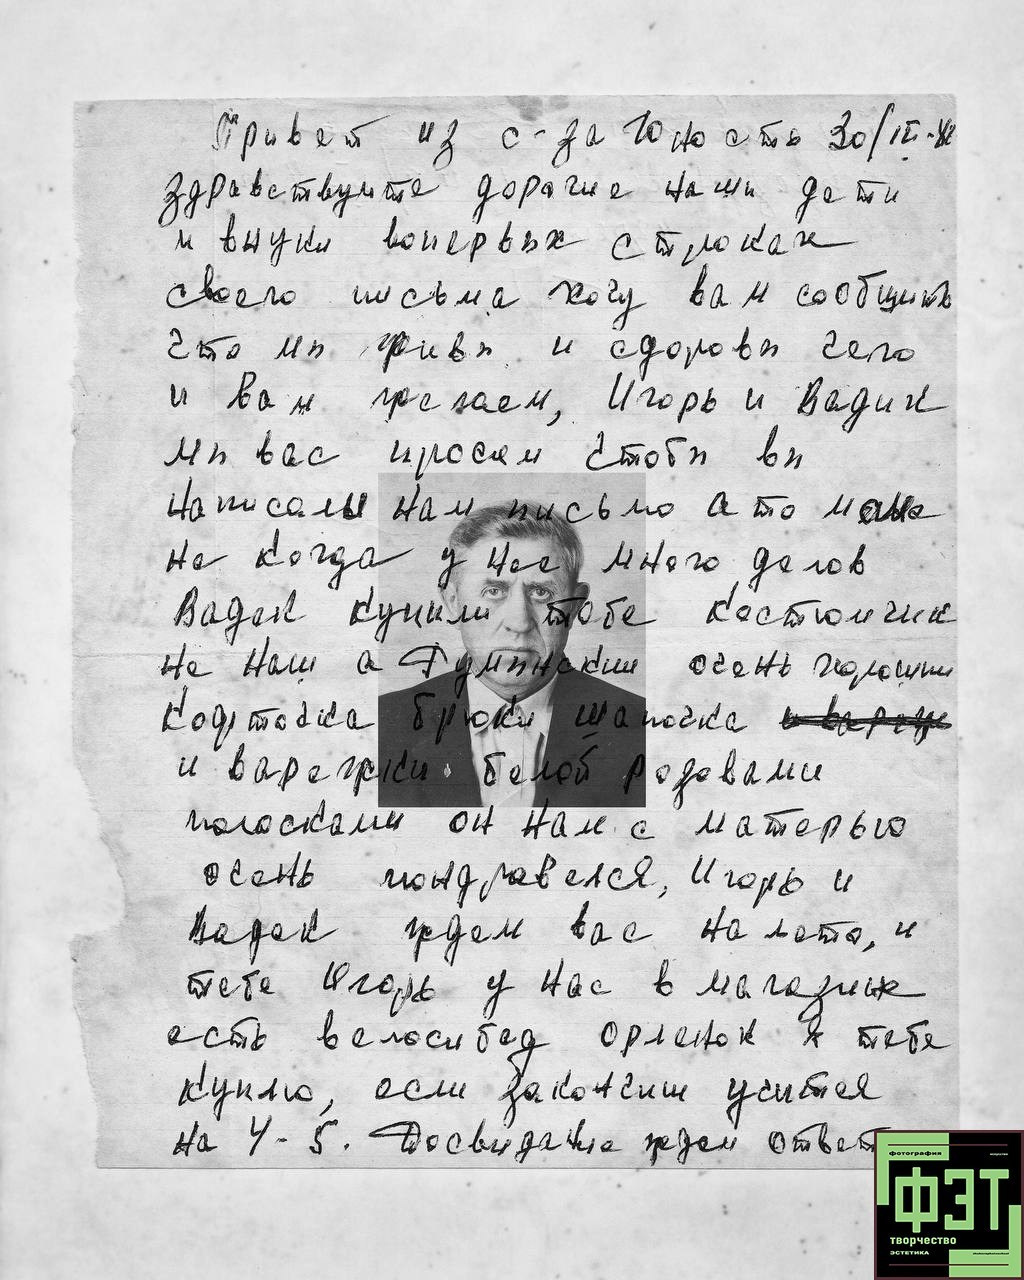 Привет из с-за Юность 30/III-
здравствуите дорогие наши дети
и внуки воперьвых строках
своего письма хочу вам сообщить
что мы живы и сдоровы чего
и вам желаем, Игорь и Вадик
мы вас просем чтобы вы
написали нам письмо а то маме
не когда у нее много делов
Вадек купили тебе костюмчик
не наш а Румынский очень хороший
кофточка брюки шапочка
и варежки белой розовами
полосками он нам с матерью
очень пондравелся, Игорь и
Вадек ждем вас на лето, и
тебе Игорь у нас в магазине
есть велосибед Орленок я тебе
куплю, если закончиш учится
на 4-5. Досвидание ждем ответ
фотография
искусство
ФЭТ
творчество
эстетика